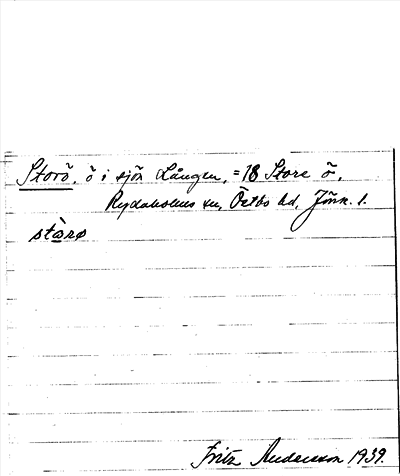 Storö, ö i sjön Lången, = 18 Store ö,
Rydaholms sn, Östbo hd, Jönk. l.
stàrø
Fritz Andersson 1939.